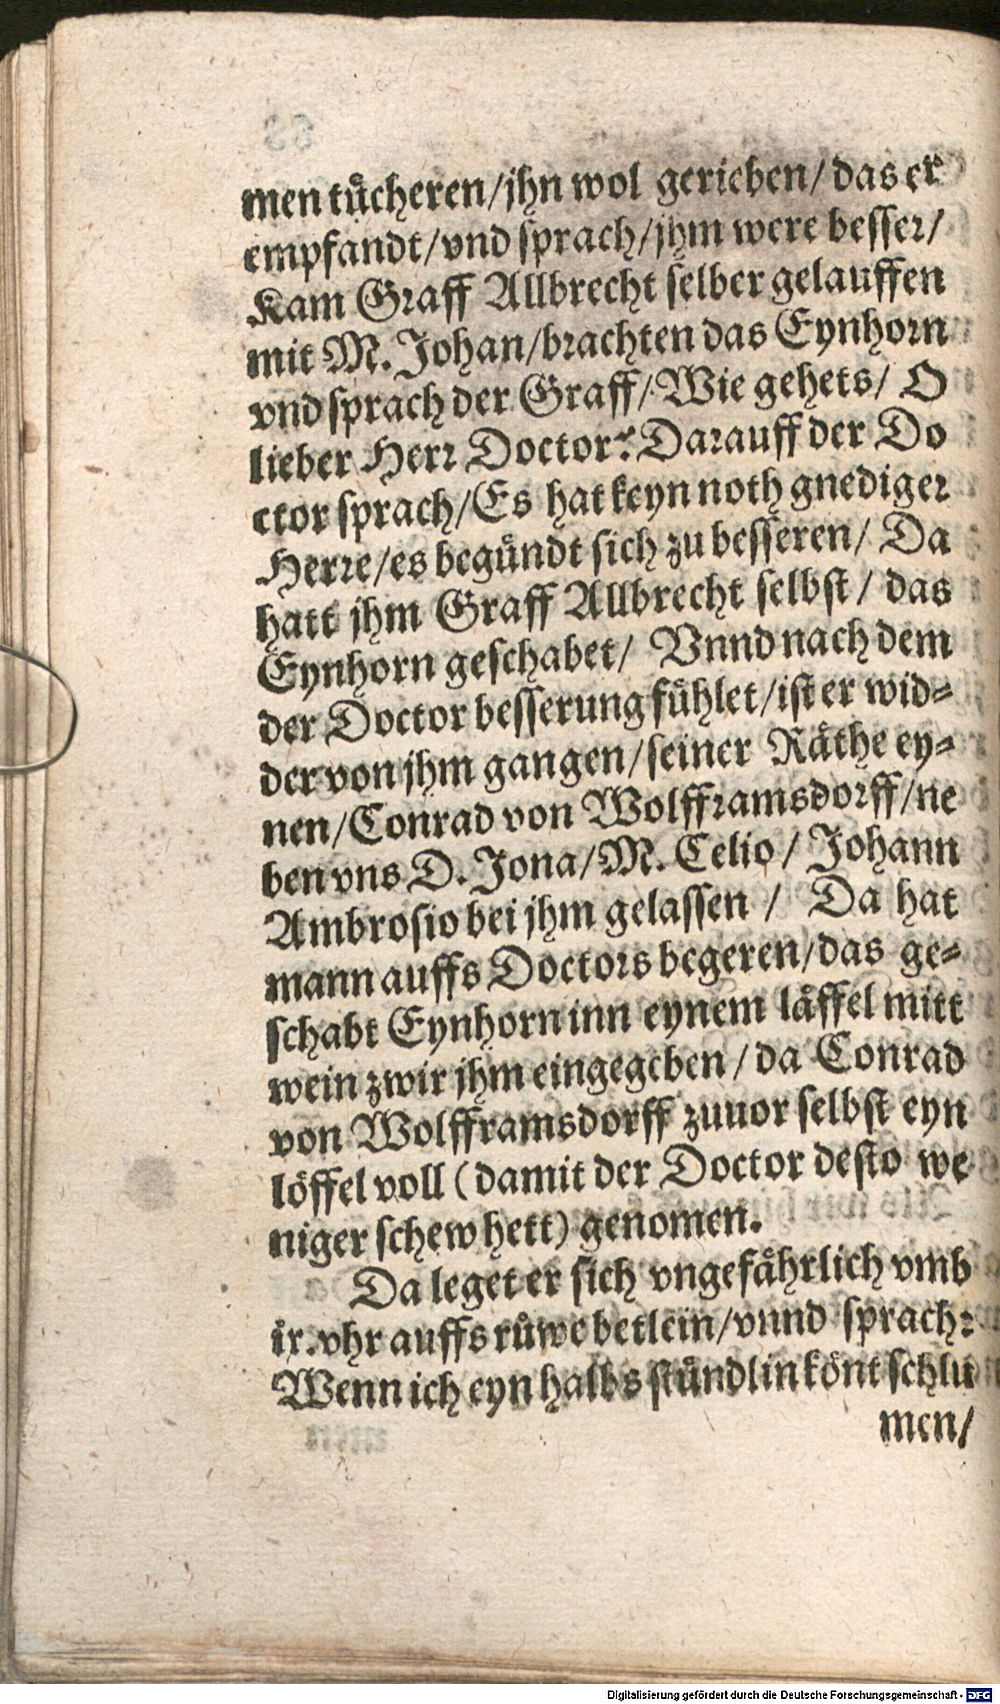 men tuͤcheren/jhn wol gerieben/das er
empfandt/vnd sprach/jhm were besser/
Kam Graff Allbrecht selber gelauffen
mit M. Johan/brachten das Eynhorn
vnd sprach der Graff/Wie gehets/ O
lieber Herr Doctor? Darauff der Do
ctor sprach/Es hat keyn noth gnediger
Herre/es beguͤndt sich zu besseren/ Da
hatt jhm Graff Allbrecht selbst/ das
Eynhorn geschabet/ Vnnd nach dem
der Doctor besserung fuͤhlet/ist er wid⸗
der von jhm gangen/seiner Raͤthe ey⸗
nen/Conrad von Wolfframsdorff/ne
ben vns D. Jona/M. Celio/ Johann
Ambrosio bei jhm gelassen / Da hat
mann auffs Doctors begeren/das ge⸗
schabt Eynhorn inn eynem laͤffel mitt
wein zwir jhm eingegeben/da Conrad
von Wolfframsdorff zuuor selbst eyn
loͤffel voll (damit der Doctor desto we
niger schew hett) genomen.
Da leget er sich vngefaͤhrlich vmb
ix. vhr auffs ruͤwe betlein/vnnd sprach:
Wenn ich eyn halbs stuͤndlin koͤnt schlu
men/
Digitalisierung gefördert durch die Deutsche Forschungsgemeinschaft - DFG